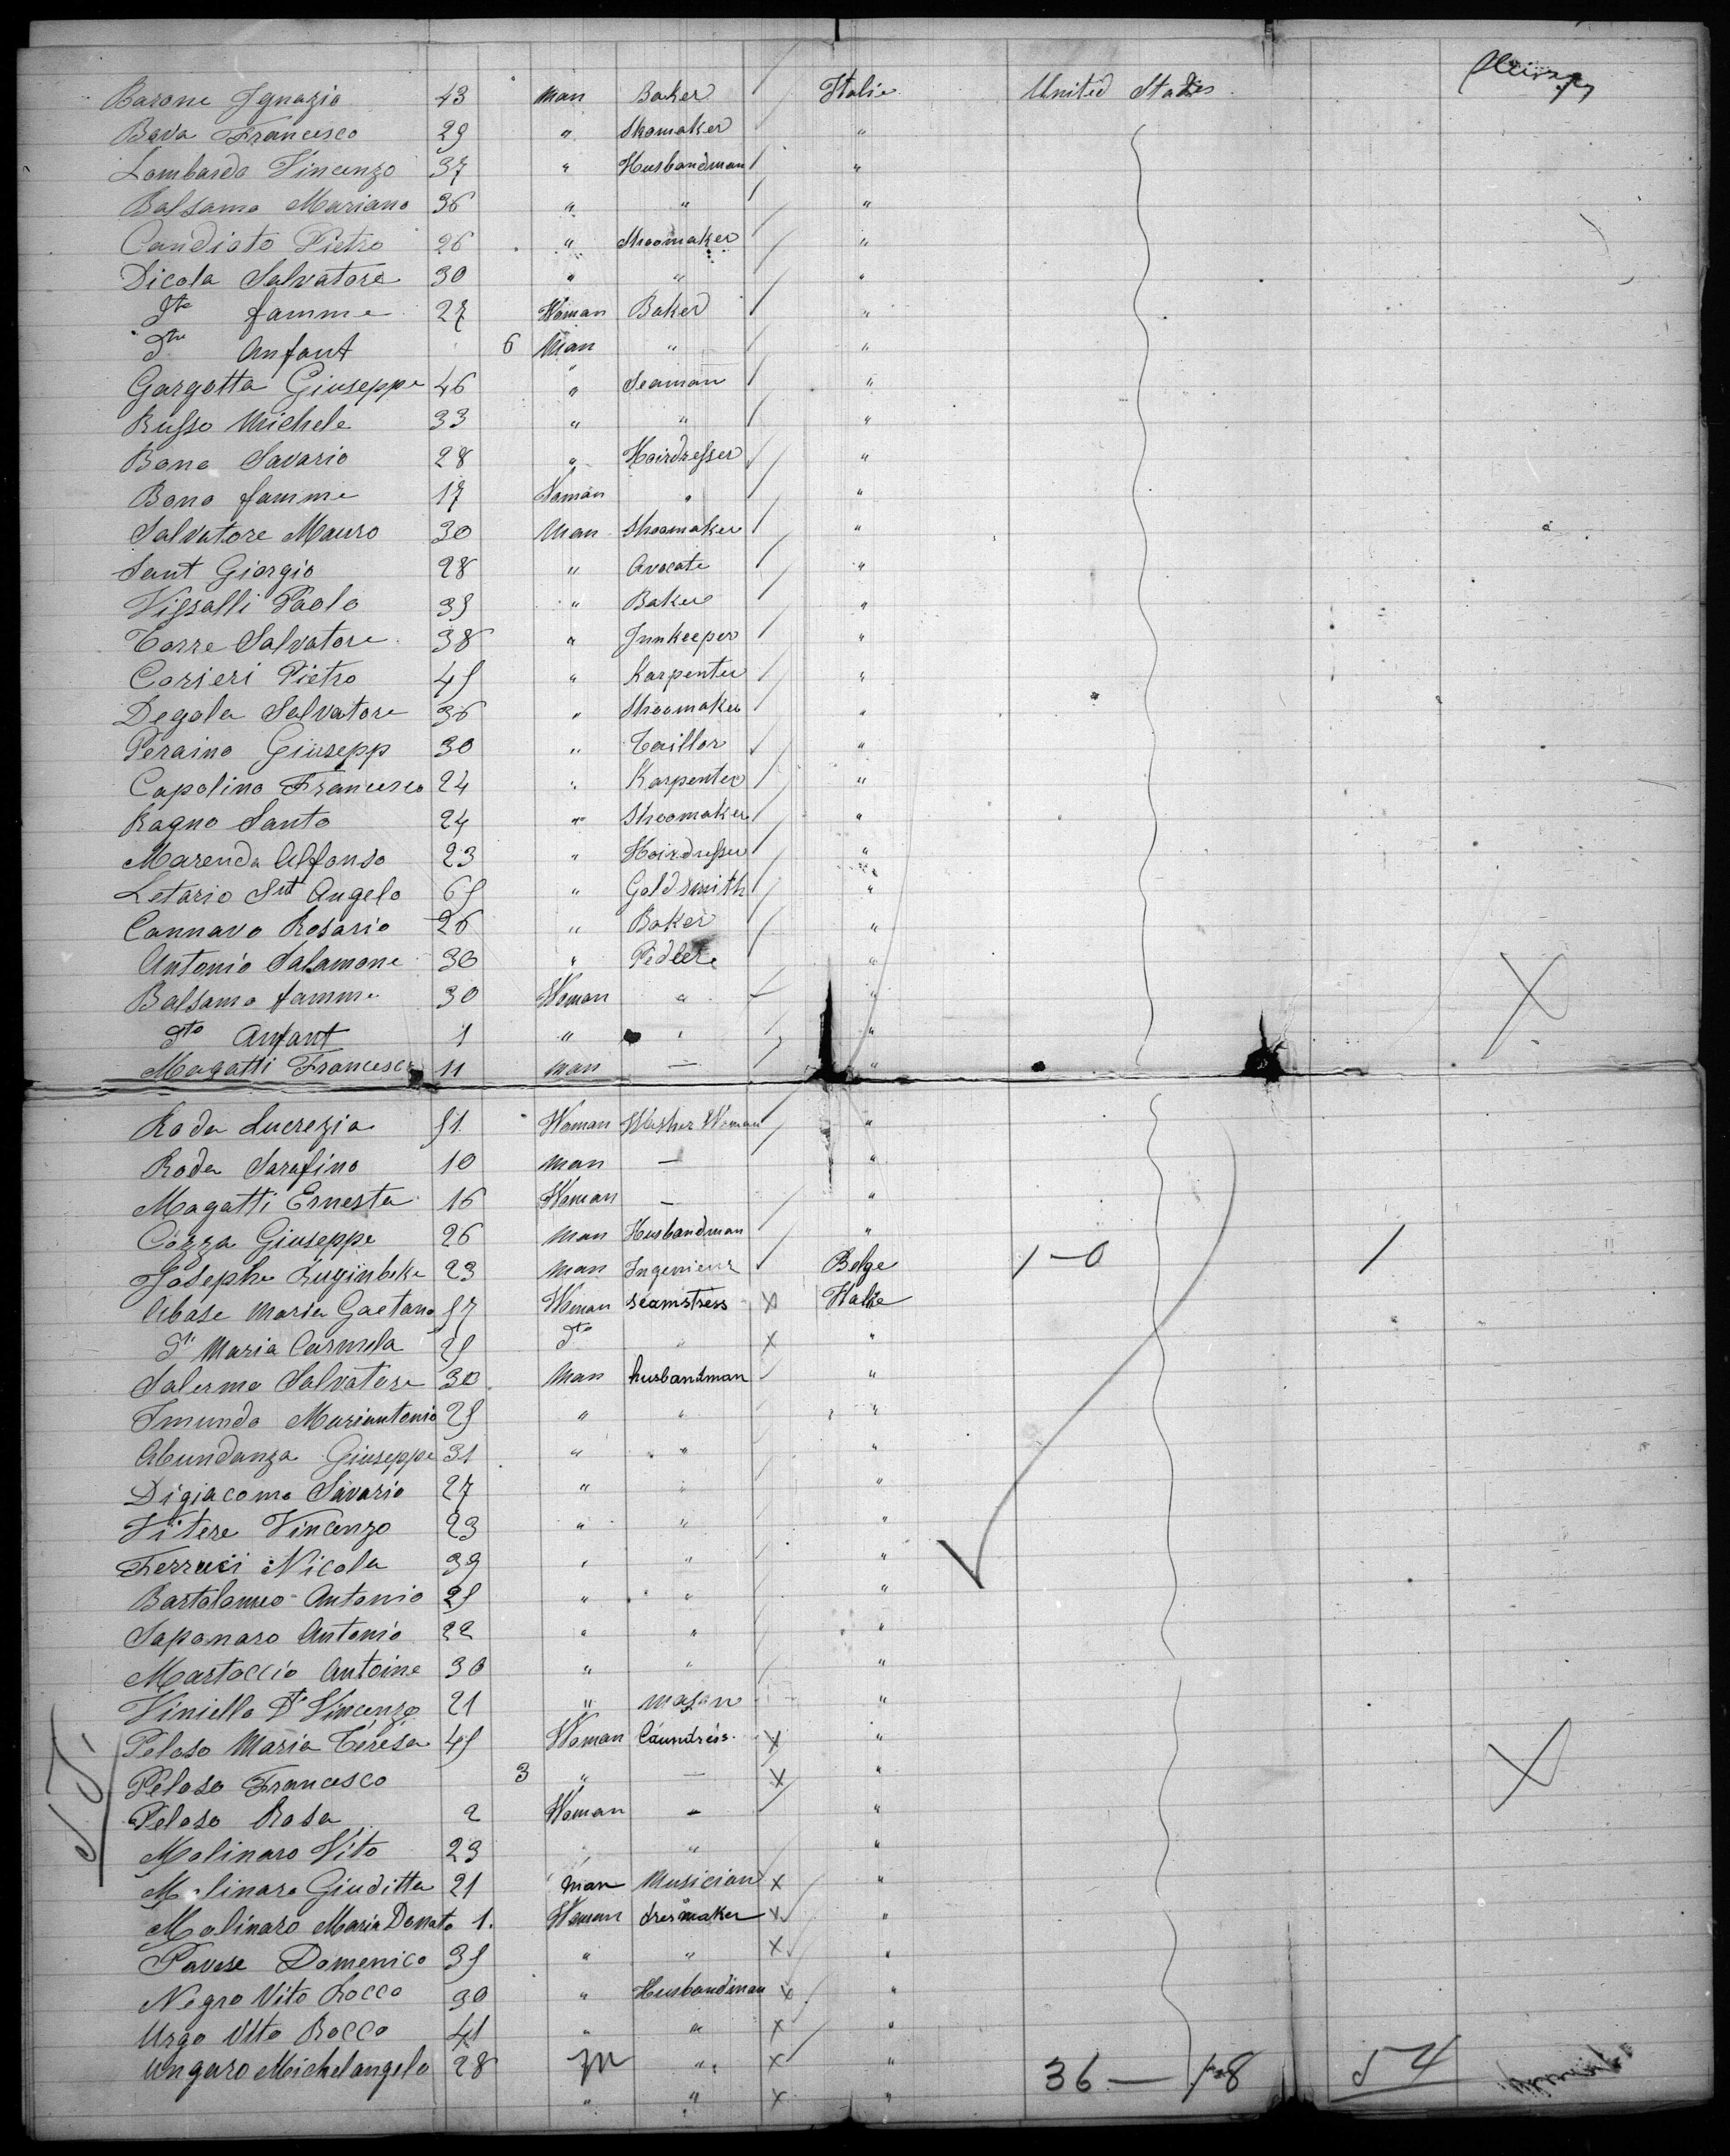 Barone Ignazio 43 Man Baker Italie United States
Bava Francesco 29 " Shomaker "
Lombardo Vincenzo 37 " Husbandman "
Balsamo Mariano 36 " " "
Candiato Pietro 26 " Shoomaker "
Dicola Salvatore 30 " " "
Dto famme 27 Woman Baker "
Dto Anfant 6 Man " "
Gargotta Giuseppe 46 " Seaman "
Russo Michele 33 " " "
Bono Savario 28 " Hairdresser "
Bono famme 17 Woman " "
Salvatore Mauro 30 Man Shoomaker "
Sant Giorgio 28 " Avocate "
Vissalli Paolo 35 " Baker "
Torre Salvatore 38 " Innkeeper "
Corieri Pietro 45 " Karpenter "
Degola Salvatore 36 " Shoomaker "
Peraino Giusepp 30 " Taillor "
Capolino Francesco 24 " Karpenter "
Ragno Santo 24 " Shoomaker "
Marenda Alfonso 23 " Hairdresser "
Letario Snt Angelo 65 " Goldsmith "
Cannavo Rosario 26 " Baker "
Antonio Salamone 30 " Pedler "
Balsamo famme 30 Woman " " X
Dto Anfant 1 " " "
Magatti Francesco 11 man — "
Roda Lucrezia 51 Woman Washer Woman "
Roda Sarafino 10 man — "
Magatti Ernesta 16 Woman — "
Cozza Giuseppe 26 man Husbandman "
Josephe Ruginbeke 23 man Ingenieur Belge 1-0 1
Abase Maria Gaetana 57 Woman seamstress X Italie
Dto Maria Carmela 25 Dto " X "
Salermo Salvatore 30 Man husbandman "
Imundo Mariantonio 25 " " "
Abundanza Giuseppe 31 " " "
Digiacomo Savario 27 " " "
Vitere Vincenzo 23 " " "
Ferruci Nicola 39 " " "
Bartolomeo Antonio 25 " " "
Saponaro Antonio 22 " " "
Martoccio Antoine 30 " " "
Viniello Dto Vincenzo 21 " mason "
Peloso Maria Teresa 45 Woman laundress X "
Peloso Francesco 3 " — X " X
Peloso Rosa 2 Woman — "
Molinaro Vito 23 " "
Molinaro Giuditta 21 man Musician X "
Molinaro Maria Donata 1. Woman dresmaker X "
Pavese Domenico 35 " " X "
Negro Vito Rocco 30 " Husbandman X "
Urgo Vito Rocco 41 " " X "
Ungaro Michelangelo 28 M " X " 36 — 18 54
" " X "